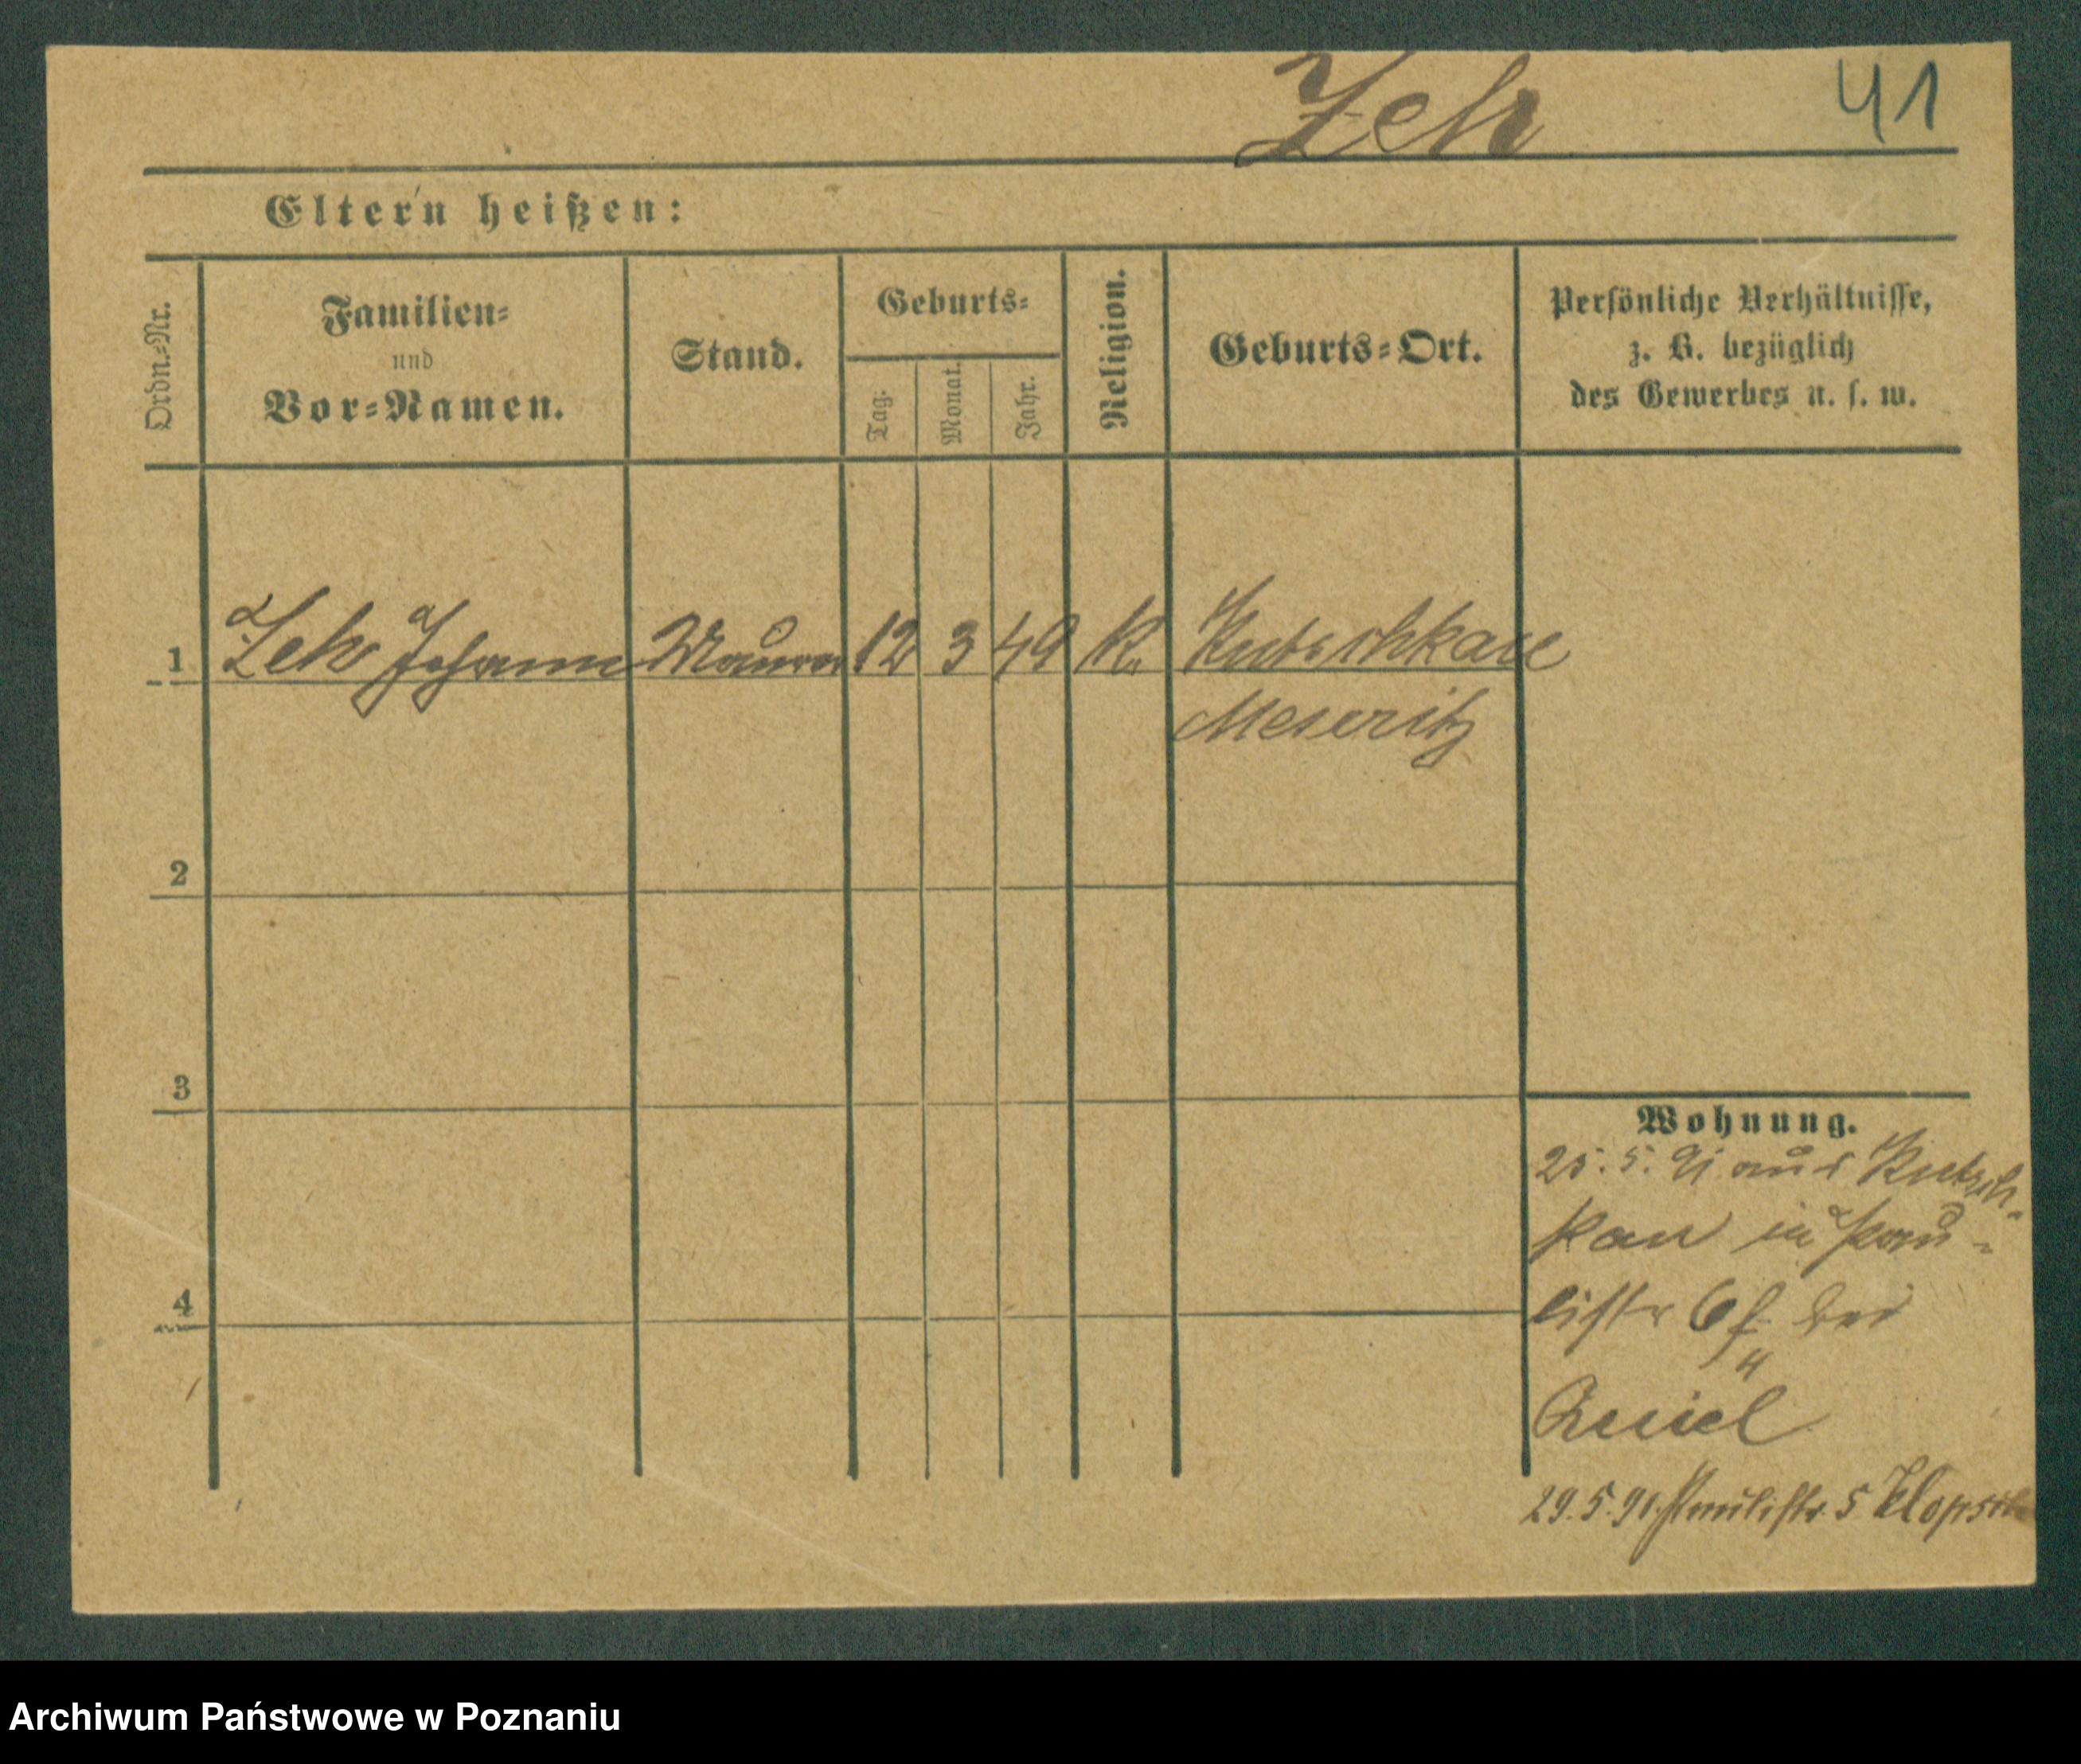 Zeh 41
Eltern heißen:
Ordn.-Nr.
Familien-
und
Vor-Namen.
Stand.
Geburts-
Tag.
Monat.
Jahr.
Religion.
Geburts-Ort.
Persönliche Verhältnisse,
z. B. bezüglich
des Gewerbes u. s. w.
1 Zeh Johann Maurer 12 3 49 K. Kutschkau
Meseritz
2
3
4
Wohnung.
25. 5. 91 aus Kutsch-
kau in Pau-
listr 6 bei
29. 5. 91 Paulistr. 5 Klopsch
Archiwum Państwowe w Poznaniu